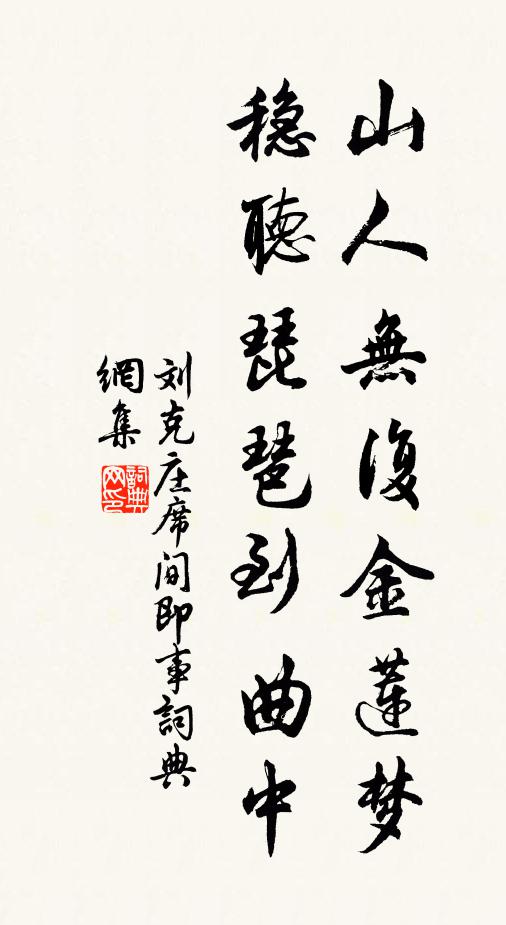 山人無復金蓮梦
穏聽琵琶到曲中
刘克庄席间即事詞典
網集
詞典网印